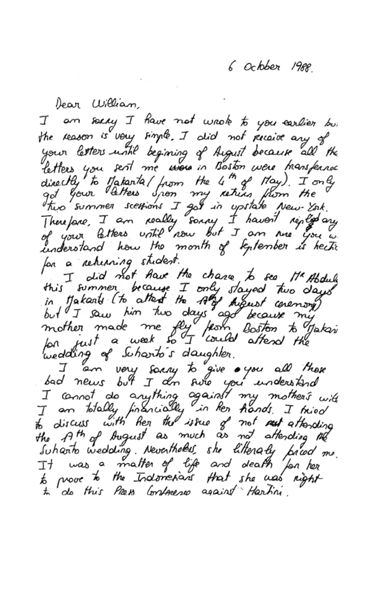 6 October 1988.
Dear William,
I am sorry I have not wrote to you earlier bu
the reason is very simple. I did not receive any of
your letters until begining of August because all the
letters you sent me were in Boston were transferred
directly to Jakarta (from the 4th of May). I only
got your letters upon my return from the
two summer sessions I got in upstate New York.
Therefore, I am really sorry I haven't replied any
of your letters until now but I am sure you w
understand how the month of September is hectic
for a returning student.
I did not have the chance to see Mr Abdul
this summer because I only stayed two days
in Jakarta (to attend the 17th of August ceremony)
but I saw him two days ago because my
mother made me fly from Boston to Jakart
for just a week so I could attend the
wedding of Suharto's daughter.
I am very sorry to give you all those
bad news but I am sure you understand
I cannot do anything against my mother's will
I am totally financially in her hands. I tried
to discuss with her the issue of not attending
the 17th of August as much as not attending the
Suharto wedding. Nevertheless, she litteraly forced me.
It was a matter of life and death for her
to prove to the Indonesians that she was right
to do this Press Conference against Hartini.